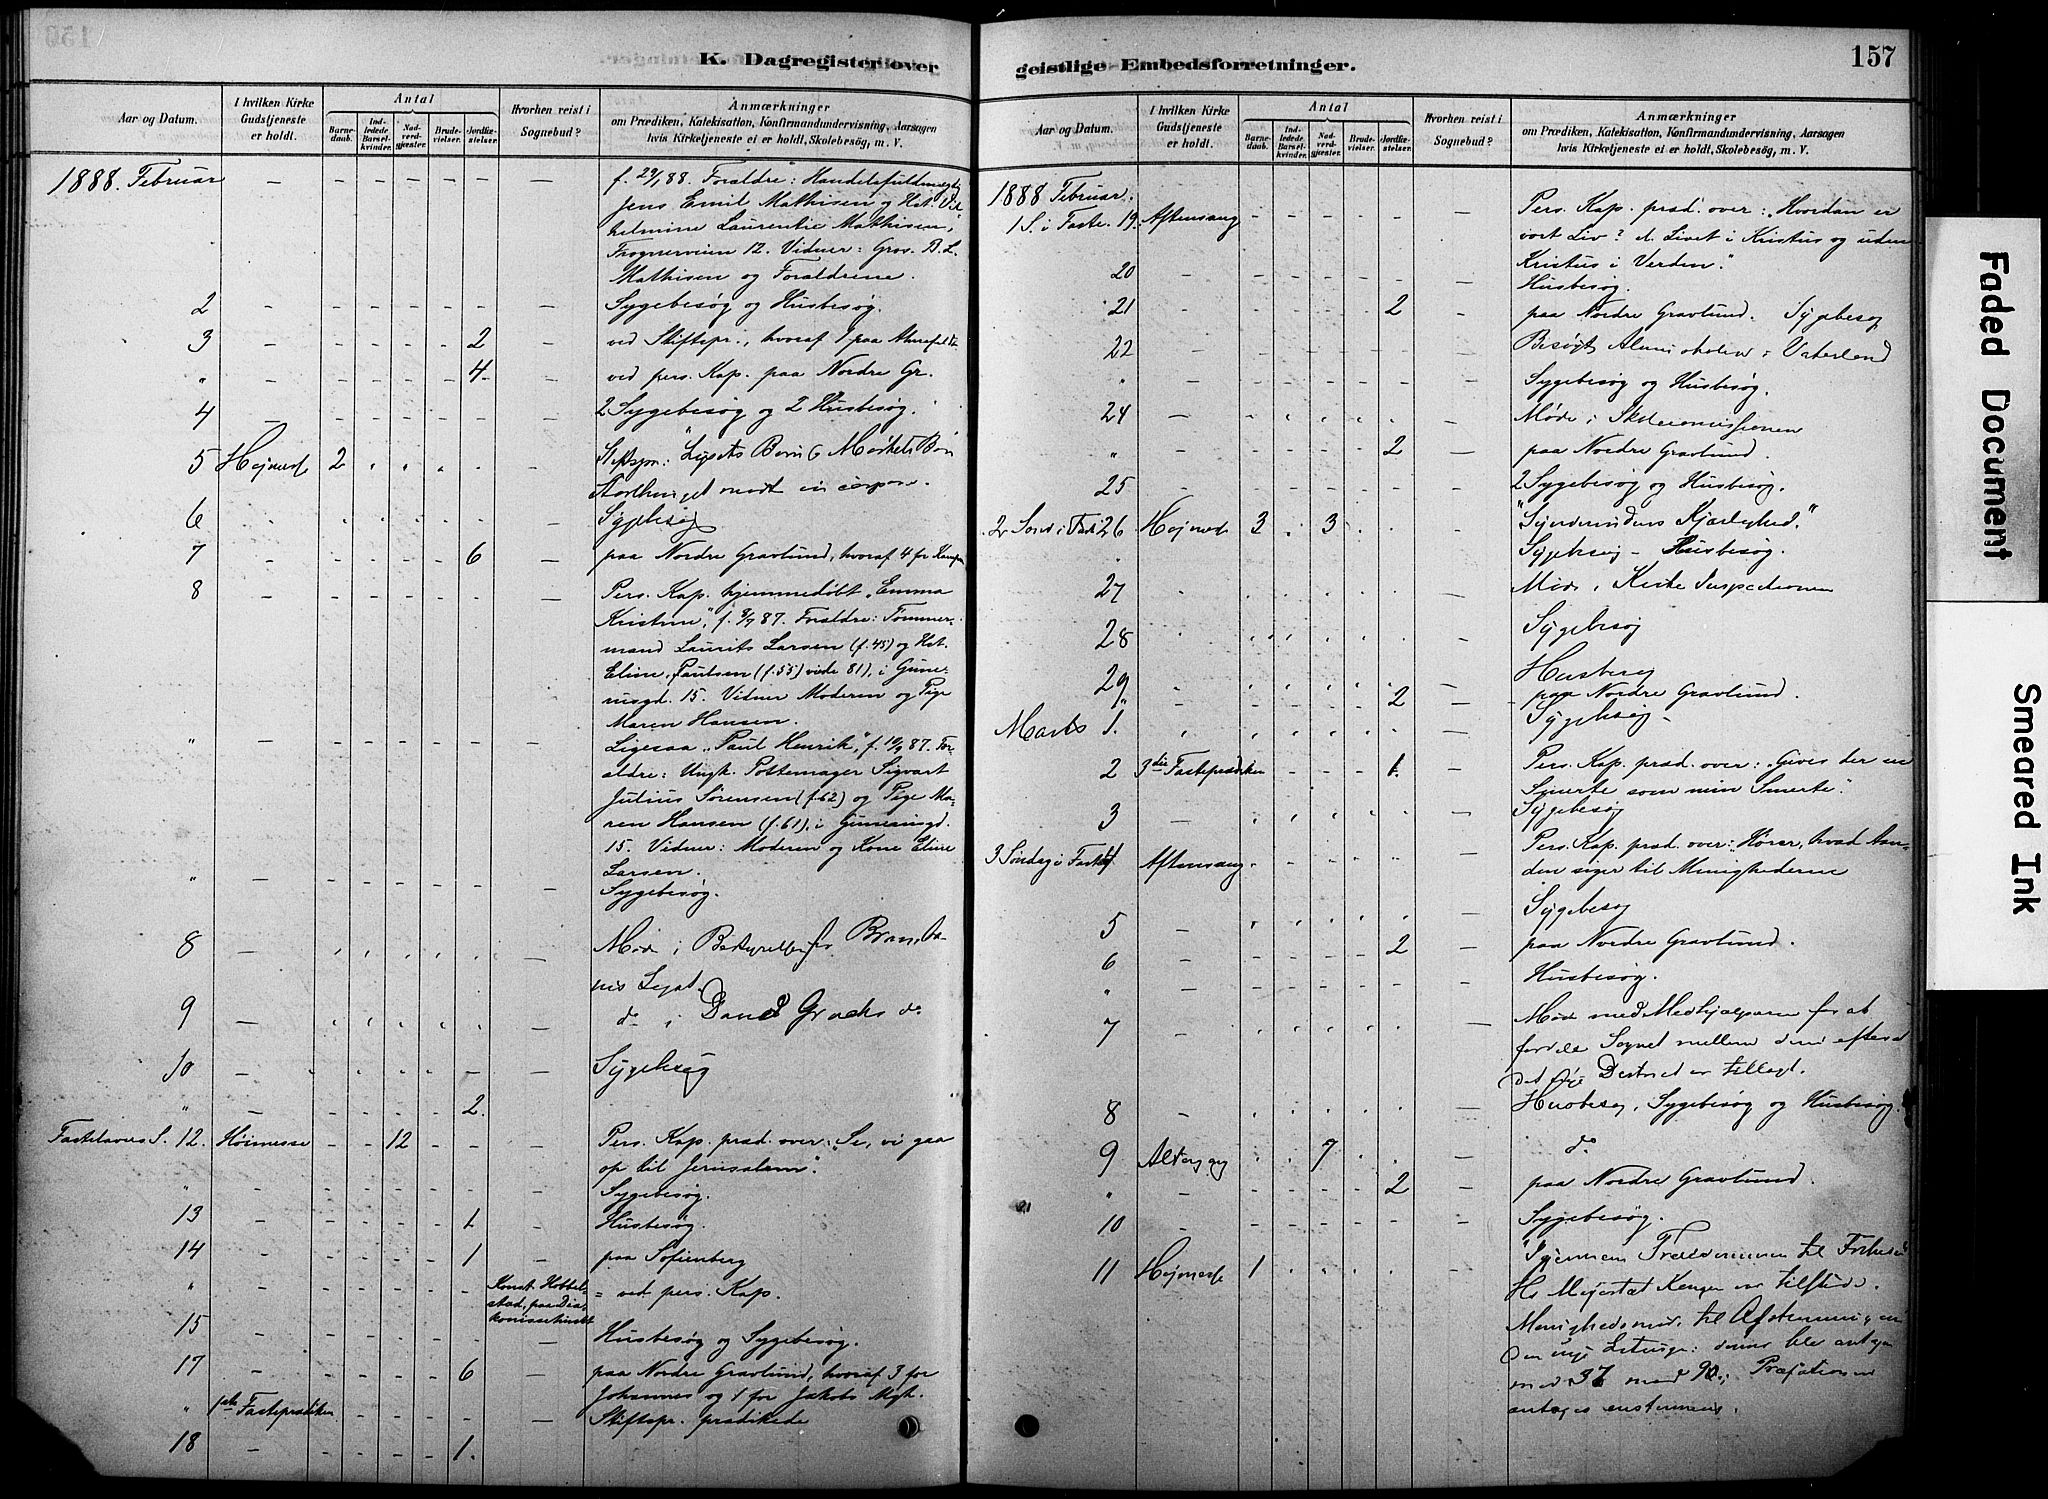 K. Dagregister over
Aar og Datum.
I hvilken Kirke Gudstjeneste er holdt.
Antal
Barnedaab.
Indledede Barselkvinder.
Nadverdgjester.
Brudevielser.
Jordfæstelser.
Hvorhen reist i Sognebud?
Anmærkninger
om Prædiken, Katekisation, Konfirmandundervisning, Aarsagen
hvis Kirketjeneste ei er holdt, Skolebesøg, m. V.
1888. Februar
f. 29/1 88. Foraldre: Handelsfuldmægtig
Jens Emil Mathisen og Hst. Vil-
helmine Laurentie Mathisen,
Frognerveien 12. Vidner: Gros. B. L.
Mathisen og Foraldrene.
2 Sygebesøg og Husbesøg.
3 2 ved Stiftspr., hvoraf 1 paa
" 4 ved pers. Kap. paa Nordre Gr.
4 2 Sygebesøg og 2 Husbesøg.
5 Højmesse 2 Stiftspr: "Lysets Børn & Mørkets Børn
Storthinget mødt in corpore.
6 Sygebesøg
7 6 paa Nordre Gravlund, hvoraf 4 for Kampen
8 Pers. Kap. hjemmedøbt "Emma
Kristine", f. 8/7 87. Foraldre: Tømmer-
mand Laurits Larsen (f. 45) og Hst.
Eline Paulsen (f. 55) viede 81), i Grøne-
15. Vidner Moderen og Pige
Maren Hansen.
" Ligesaa "Paul Henrik", f. 19/9 87. For-
aldre: Ungk. Pottemager Sigvart
Julius Sørensen (f. 62) og Pige Ma-
ren Hansen (f. 61), i
15. Vidner: Moderen og Kone Eline
Larsen.
" Sygebesøg.
8 Møde i Bestyrelsen for
Legat.
9 do i David Graahs do
10 Sygebesøg
" 2.
Fastelavns S. 12. Høimesse 12 Pers. Kap. præd. over: "Se, vi gaa
op til Jerusalem".
" Sygebesøg.
13 1 Husbesøg.
14 1 paa Sofienberg
" Konst. Hobbel-
stad, paa Dia-
konissehuset = ved pers. Kap.
15 Husbesøg og Sygebesøg.
17 6 paa Nordre Gravlund, hvoraf 3 for
Johannes og 1 for Jakobs Mgh.
" 1ste Fasteprædiken Stiftspr. prædikede
18 1.
geistlige Embedsforretninger.
157
Aar og Datum.
I hvilken Kirke Gudstjeneste er holdt.
Antal
Barnedaab.
Indledede Barselkvinder.
Nadverdgjester.
Brudevielser.
Jordfæstelser.
Hvorhen reist i Sognebud?
Anmærkninger
om Prædiken, Katekisation, Konfirmandundervisning, Aarsagen
hvis Kirketjeneste ei er holdt, Skolebesøg, m. V.
1888 Februar.
1 S. i Faste. 19. Aftensang Pers. Kap. præd. over: "Hvordan er
vort Liv? d. Livet i Kristus og uden
Kristus i Verden."
20 Husbesøg.
21 2 paa Nordre Gravlund. Sygebesøg
22 Besøgt Almueskolen i Vaterland
" Sygebesøg og Husbesøg.
24 Møde i Skolecommissionen
" 2 paa Nordre Gravlund.
25 2 Sygebesøg og Husbesøg.
2 Sønd. i Fast. 26 Højmesse 3 3 "Synderindens Kjærlighed."
" Sygebesøg - Husbesøg.
27 Møde i Kirke Inspectionen
28 Sygebesøg
29 Husbesøg
" 2 paa Nordre Gravlund.
Marts 1. Sygebesøg -
2 3die Fasteprædiken 1. Pers. Kap. præd. over: "Gives der en
Smerte som min Smerte".
3 Sygebesøg
3 Søndag i Faste 4 Aftensang. Pers. Kap. præd. over: Hører, hvad Aan-
den siger til Menighederne
5 Sygebesøg
6 2 paa Nordre Gravlund.
" Husbesøg.
7 Møde med Medhjælperne for at
fordele Sognet mellem dem efter at
det nye District er tillagt.
8 Husbesøg, Sygebesøg og Husbesøg.
9 Altergang 7 do
" 2 paa Nordre Gravlund.
21
10 Sygebesøg.
11 Højmesse 1 "Igjennem til
Hs Majestæt Kongen var tilstede.
Menighedsmøde til Afstemning
Den nye Liturgi: denne blev antagen
med 37 mod 90; Præfationen
antoges enstemmig.
Faded Document
Smeared Ink